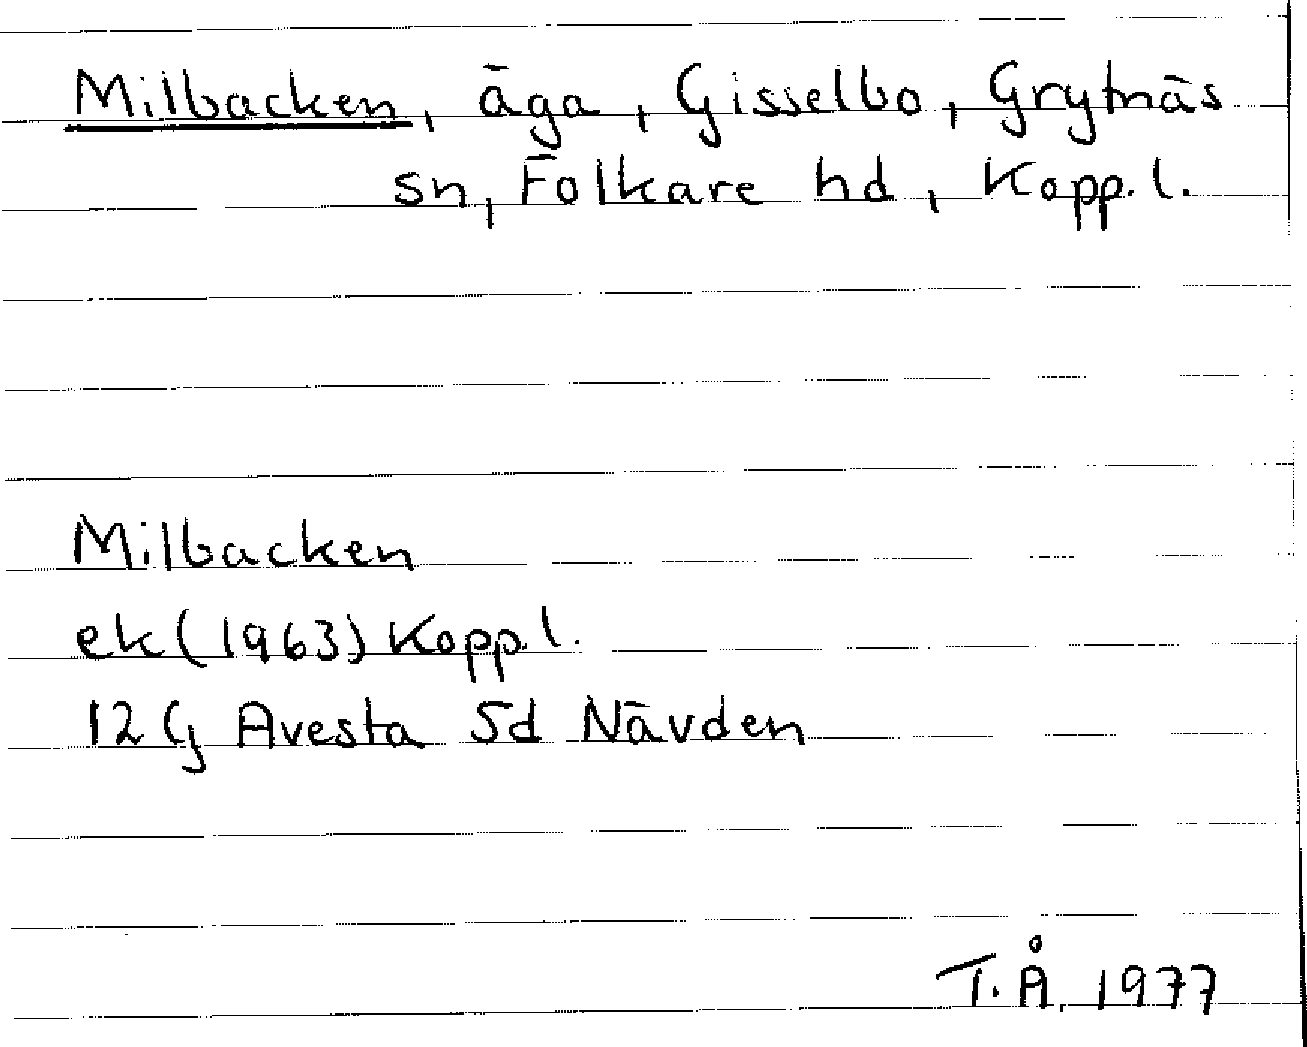 Milbacken, äga, Gisselbo, Grytnäs
sn, Folkare hd, Kopp. l.
Milbacken
ek (1963) Kopp. l.
12 G Avesta 5d Nävden
T. Å. 1977